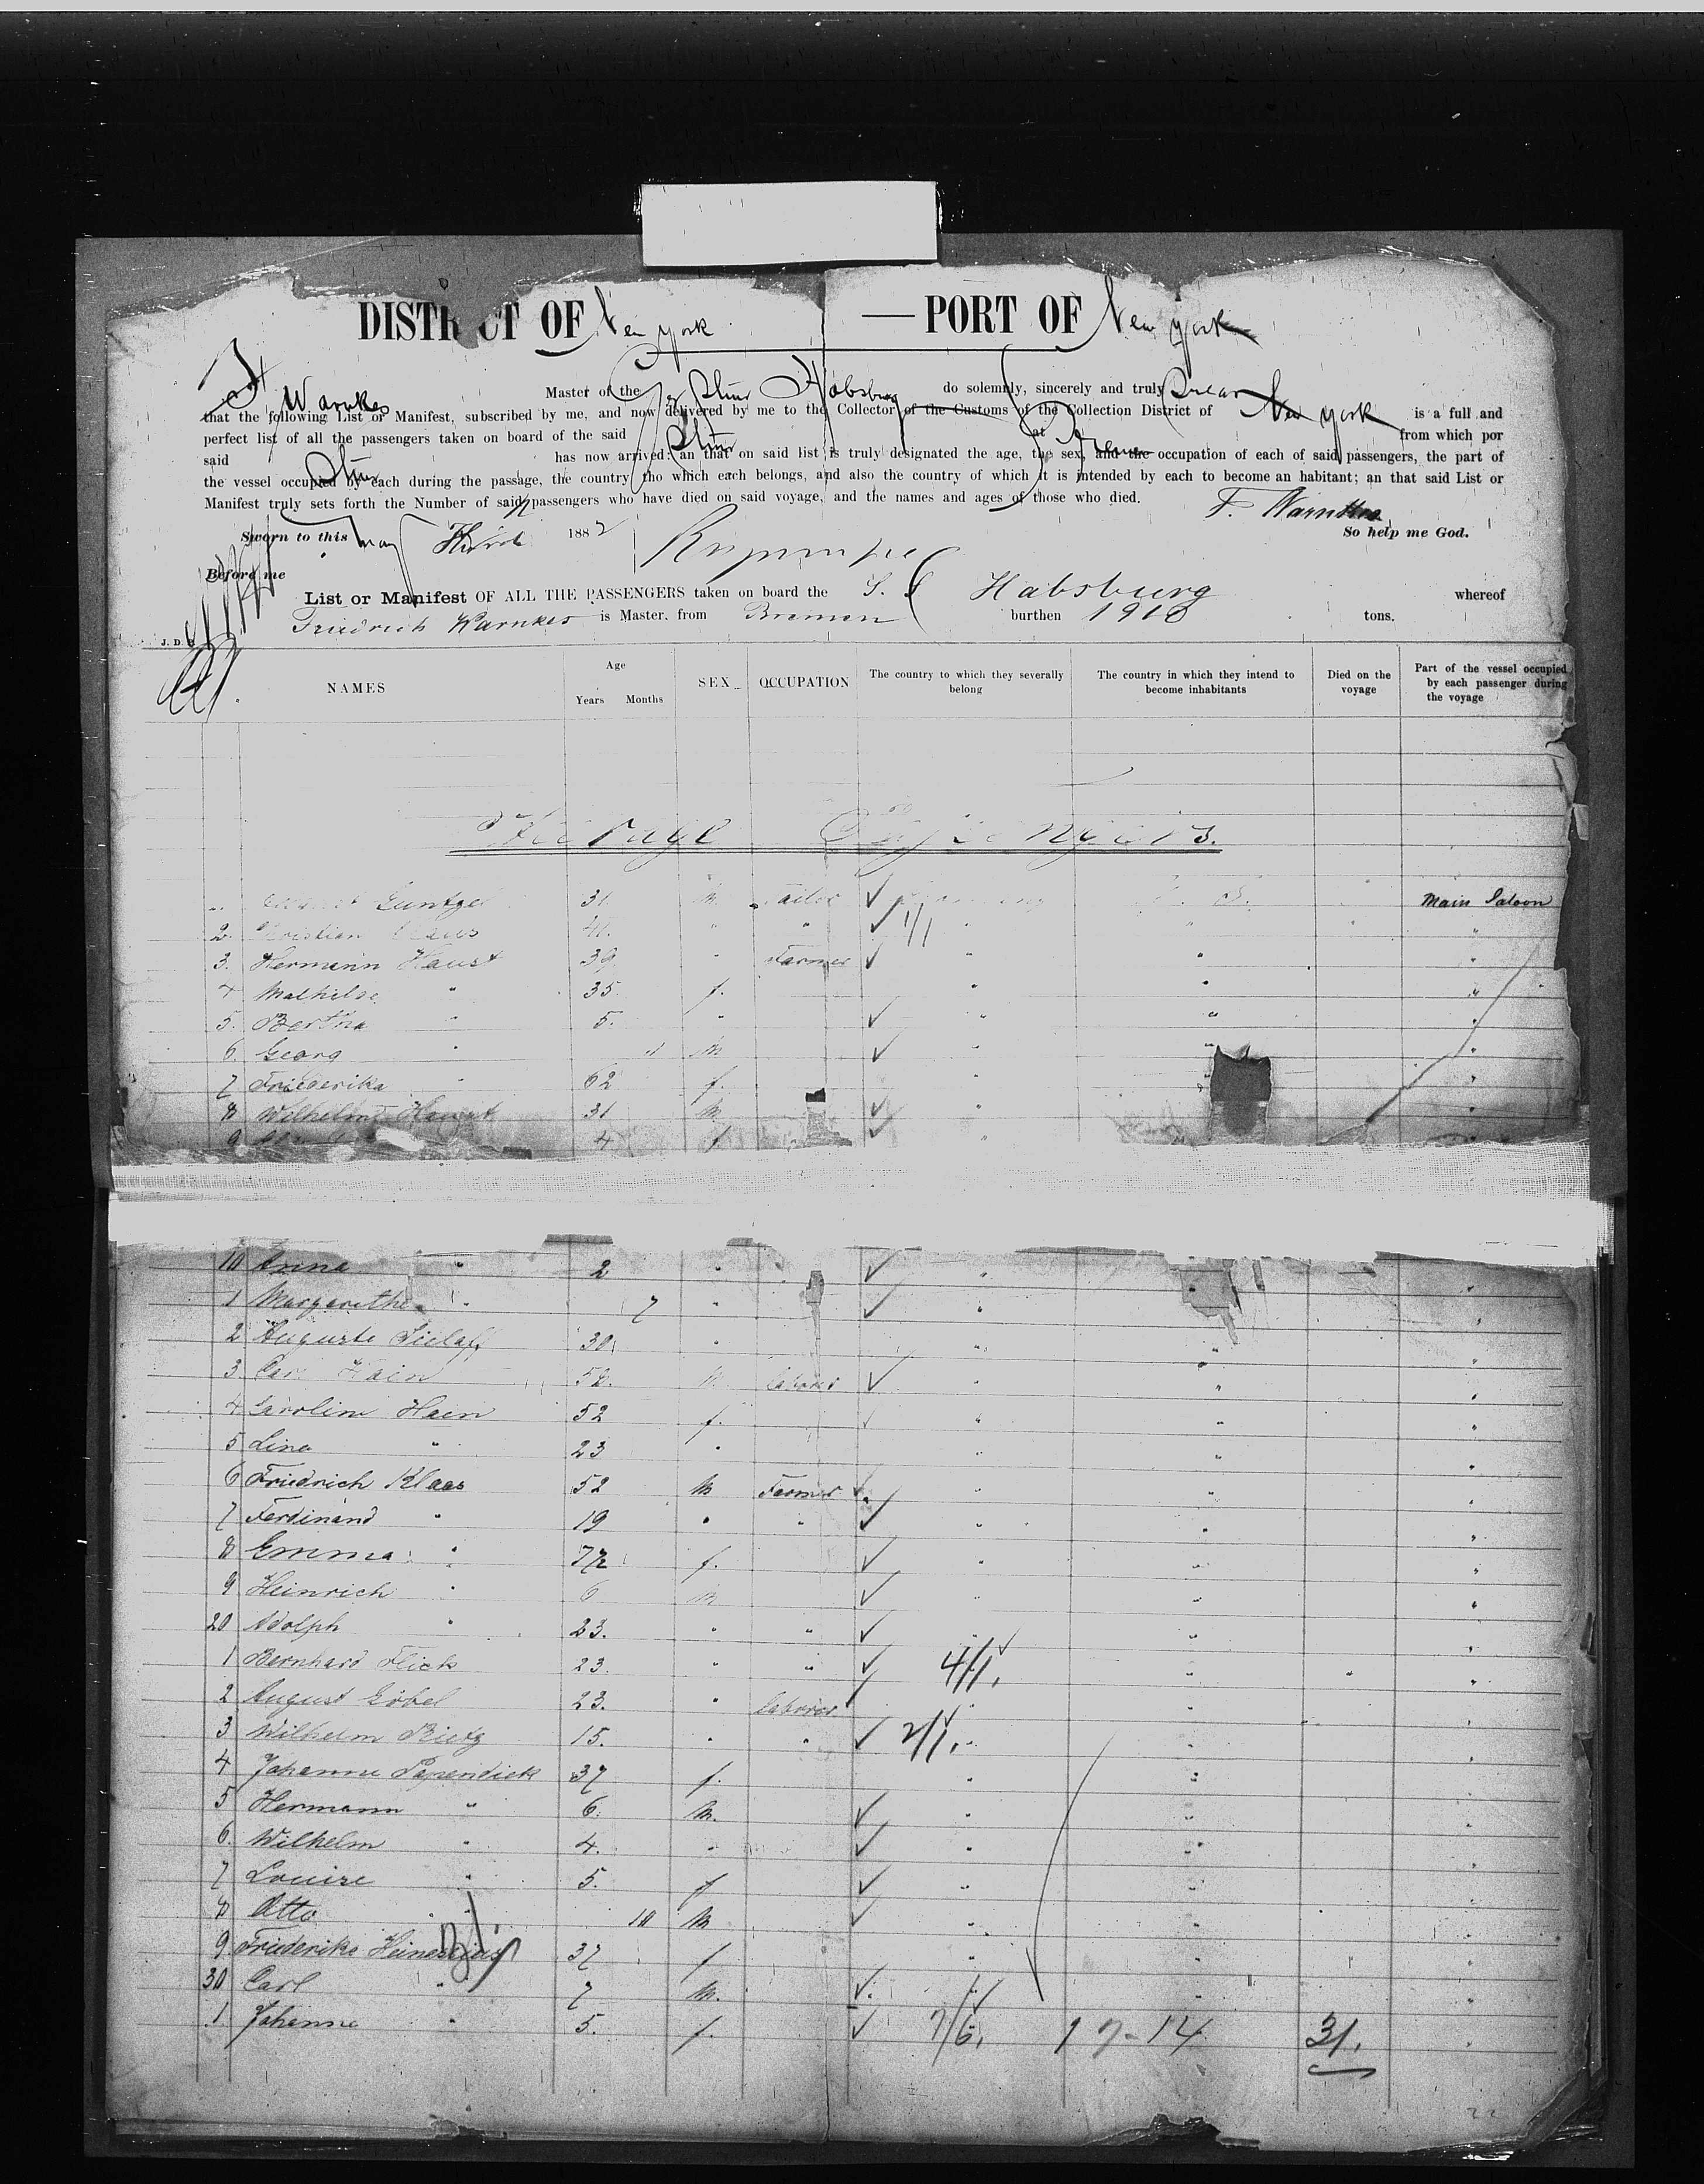 DISTRICT OF New York — PORT OF New York
I F Warnkes Master of the Str Habsburg do solemnly, sincerely and truly swear
that the following List or Manifest, subscribed by me, and now delivered by me to the Collector of the Customs of the Collection District of New York is a full and
perfect list of all the passengers taken on board of the said Str at Bremen from which por
said Str has now arrived: an that on said list is truly designated the age, the sex, and the occupation of each of said passengers, the part of
the vessel occupied by each during the passage, the country tho which each belongs, and also the country of which it is intended by each to become an habitant; an that said List or
Manifest truly sets forth the Number of said passengers who have died on said voyage, and the names and ages of those who died.
F. Warnkes
Sworn to this May Third 1882 So help me God.
Before me
List or Manifest OF ALL THE PASSENGERS taken on board the S. S Habsburg whereof
Friedrich Warnkes is Master, from Bremen burthen 1910 tons.
J. D.
NAMES Age Years Months SEX OCCUPATION The country to which they severally belong The country in which they intend to become inhabitants Died on the voyage Part of the vessel occupied by each passenger during the voyage
Steerage Passengers.
Güntzel 31 M. Tailor ✓ Main Saloon
2. Christian 41. " " ✓ 1/1 " "
3. Hermann Haust 39 " Farmer ✓ " " "
4 Mathilde " 35 f. " " "
5. Bertha " 5. " ✓ " " "
6. Georg " 11 M ✓ " " "
7 Friederika " 62 f. " "
8 Wilhelm Haust 31 M ✓ " "
9 4 f. ✓ "
10 Anna " 2 " ✓ " "
1 Margarethe " 7 " ✓ " "
2 Auguste Sielaff 30 " " " "
3 Carl Hain 52. M. Laborer ✓ " " "
4 Caroline Hain 52 f. ✓ " " "
5 Lina " 23 " " " "
6 Friedrich Klaas 52 M Farmer ✓ " " "
7 Ferdinand " 19 " " ✓ " " "
8 Emma " f. ✓ " " "
9 Heinrich " 6 M ✓ " " "
20 Adolph " 23. " " ✓ " " "
1 Bernhard Flick 23. " " ✓ 4/1. " " "
2 August Göbel 23. " Laborer ✓ " " "
3 Wilhelm Rietz 15. " " ✓ 2/1. " " "
4 Johanne Papendick 37 f. " " "
5 Hermann " 6. M. ✓ " " "
6. Wilhelm " 4. " ✓ " " "
7 Louise " 5. f ✓ " " "
8 Otto " 10 M ✓ " " "
9 Friederike 37 f " " "
30 Carl " 7 M. ✓ " " "
1 Johanne " 5. f. ✓ 7/6. 17-14 31. "